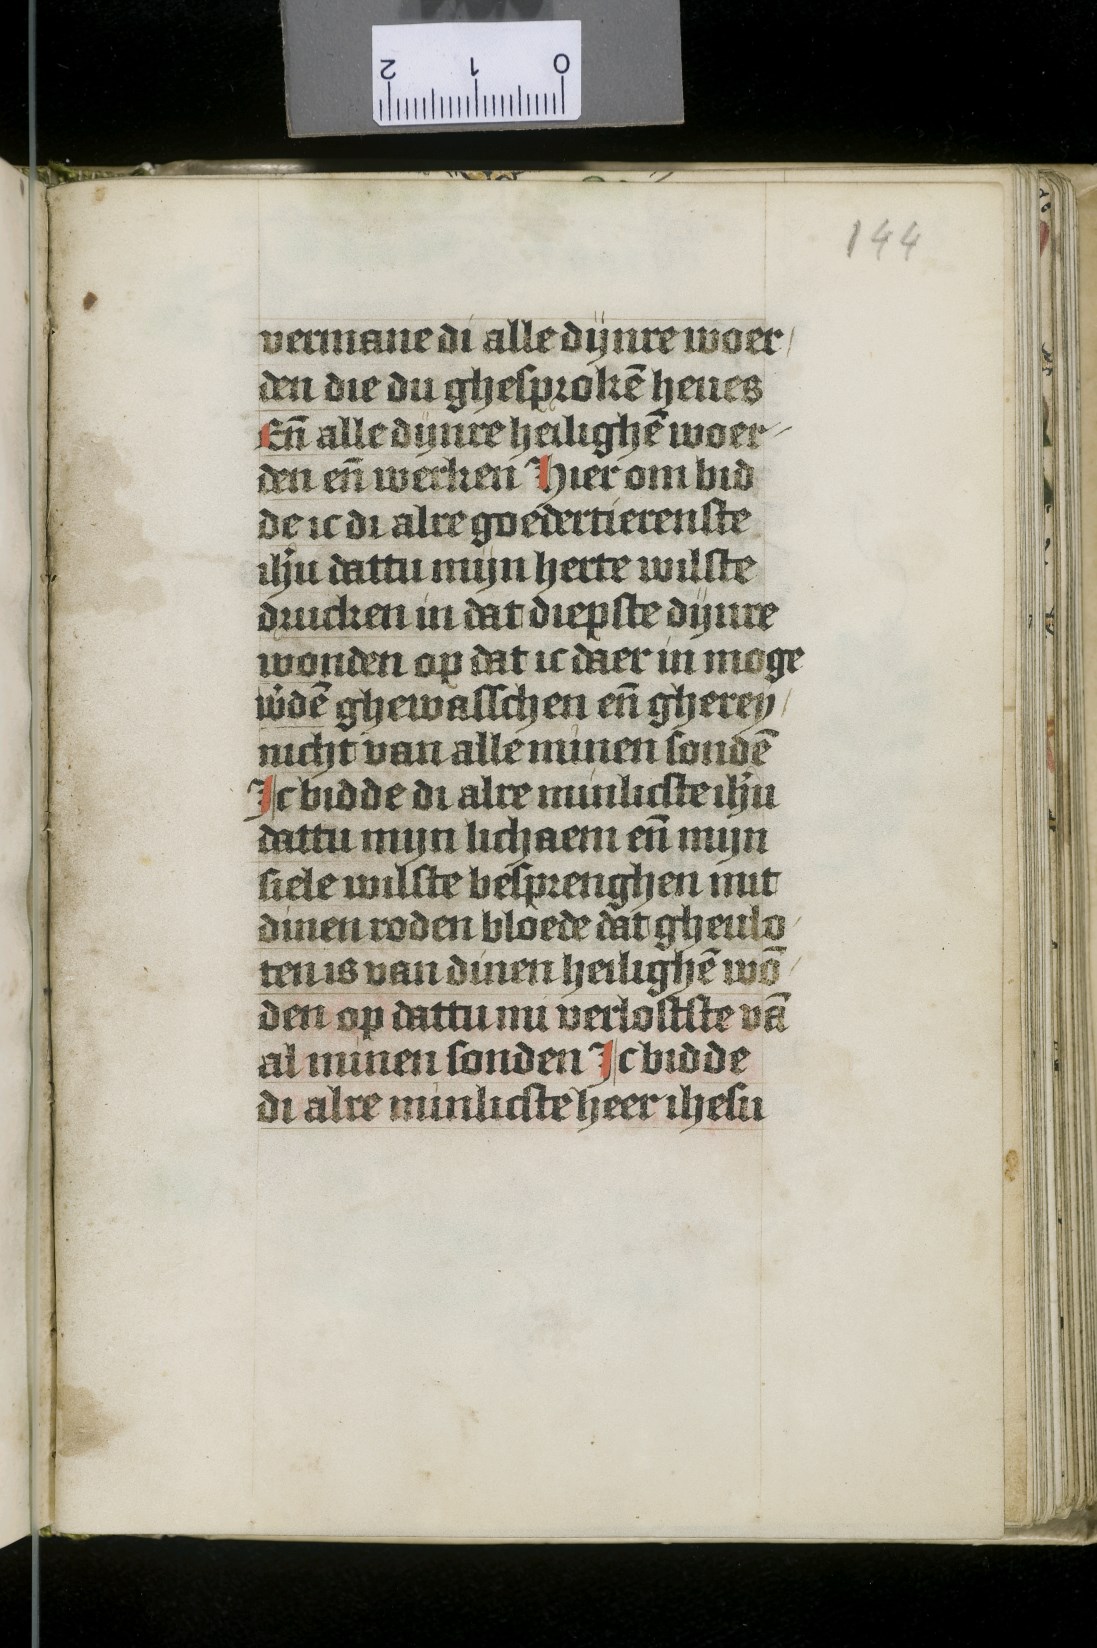 2 1 0
144
vermane di alle dijnre woer/
den die du ghesprokē heues
Eñ alle dijnre heilighē woer/
den eñ werken Hier om bid
de ic di alre goedertierenste
ihu̅ dattu mijn herte wilste
drucken in dat diepste dijnre
wonden op dat ic daer in moge
w̉dē ghewasschen eñ gherey/
nicht van alle minen sondē
Ic bidde di alre minlicste ihu̅
dattu mijn lichaem eñ mijn
siele wilste besprenghen mit
dinen roden bloede dat gheulo/
ten is van dinen heilighē wō/
den op dattu mi verlostste vā
al minen sonden Ic bidde
di alre minlicste heer ihesu